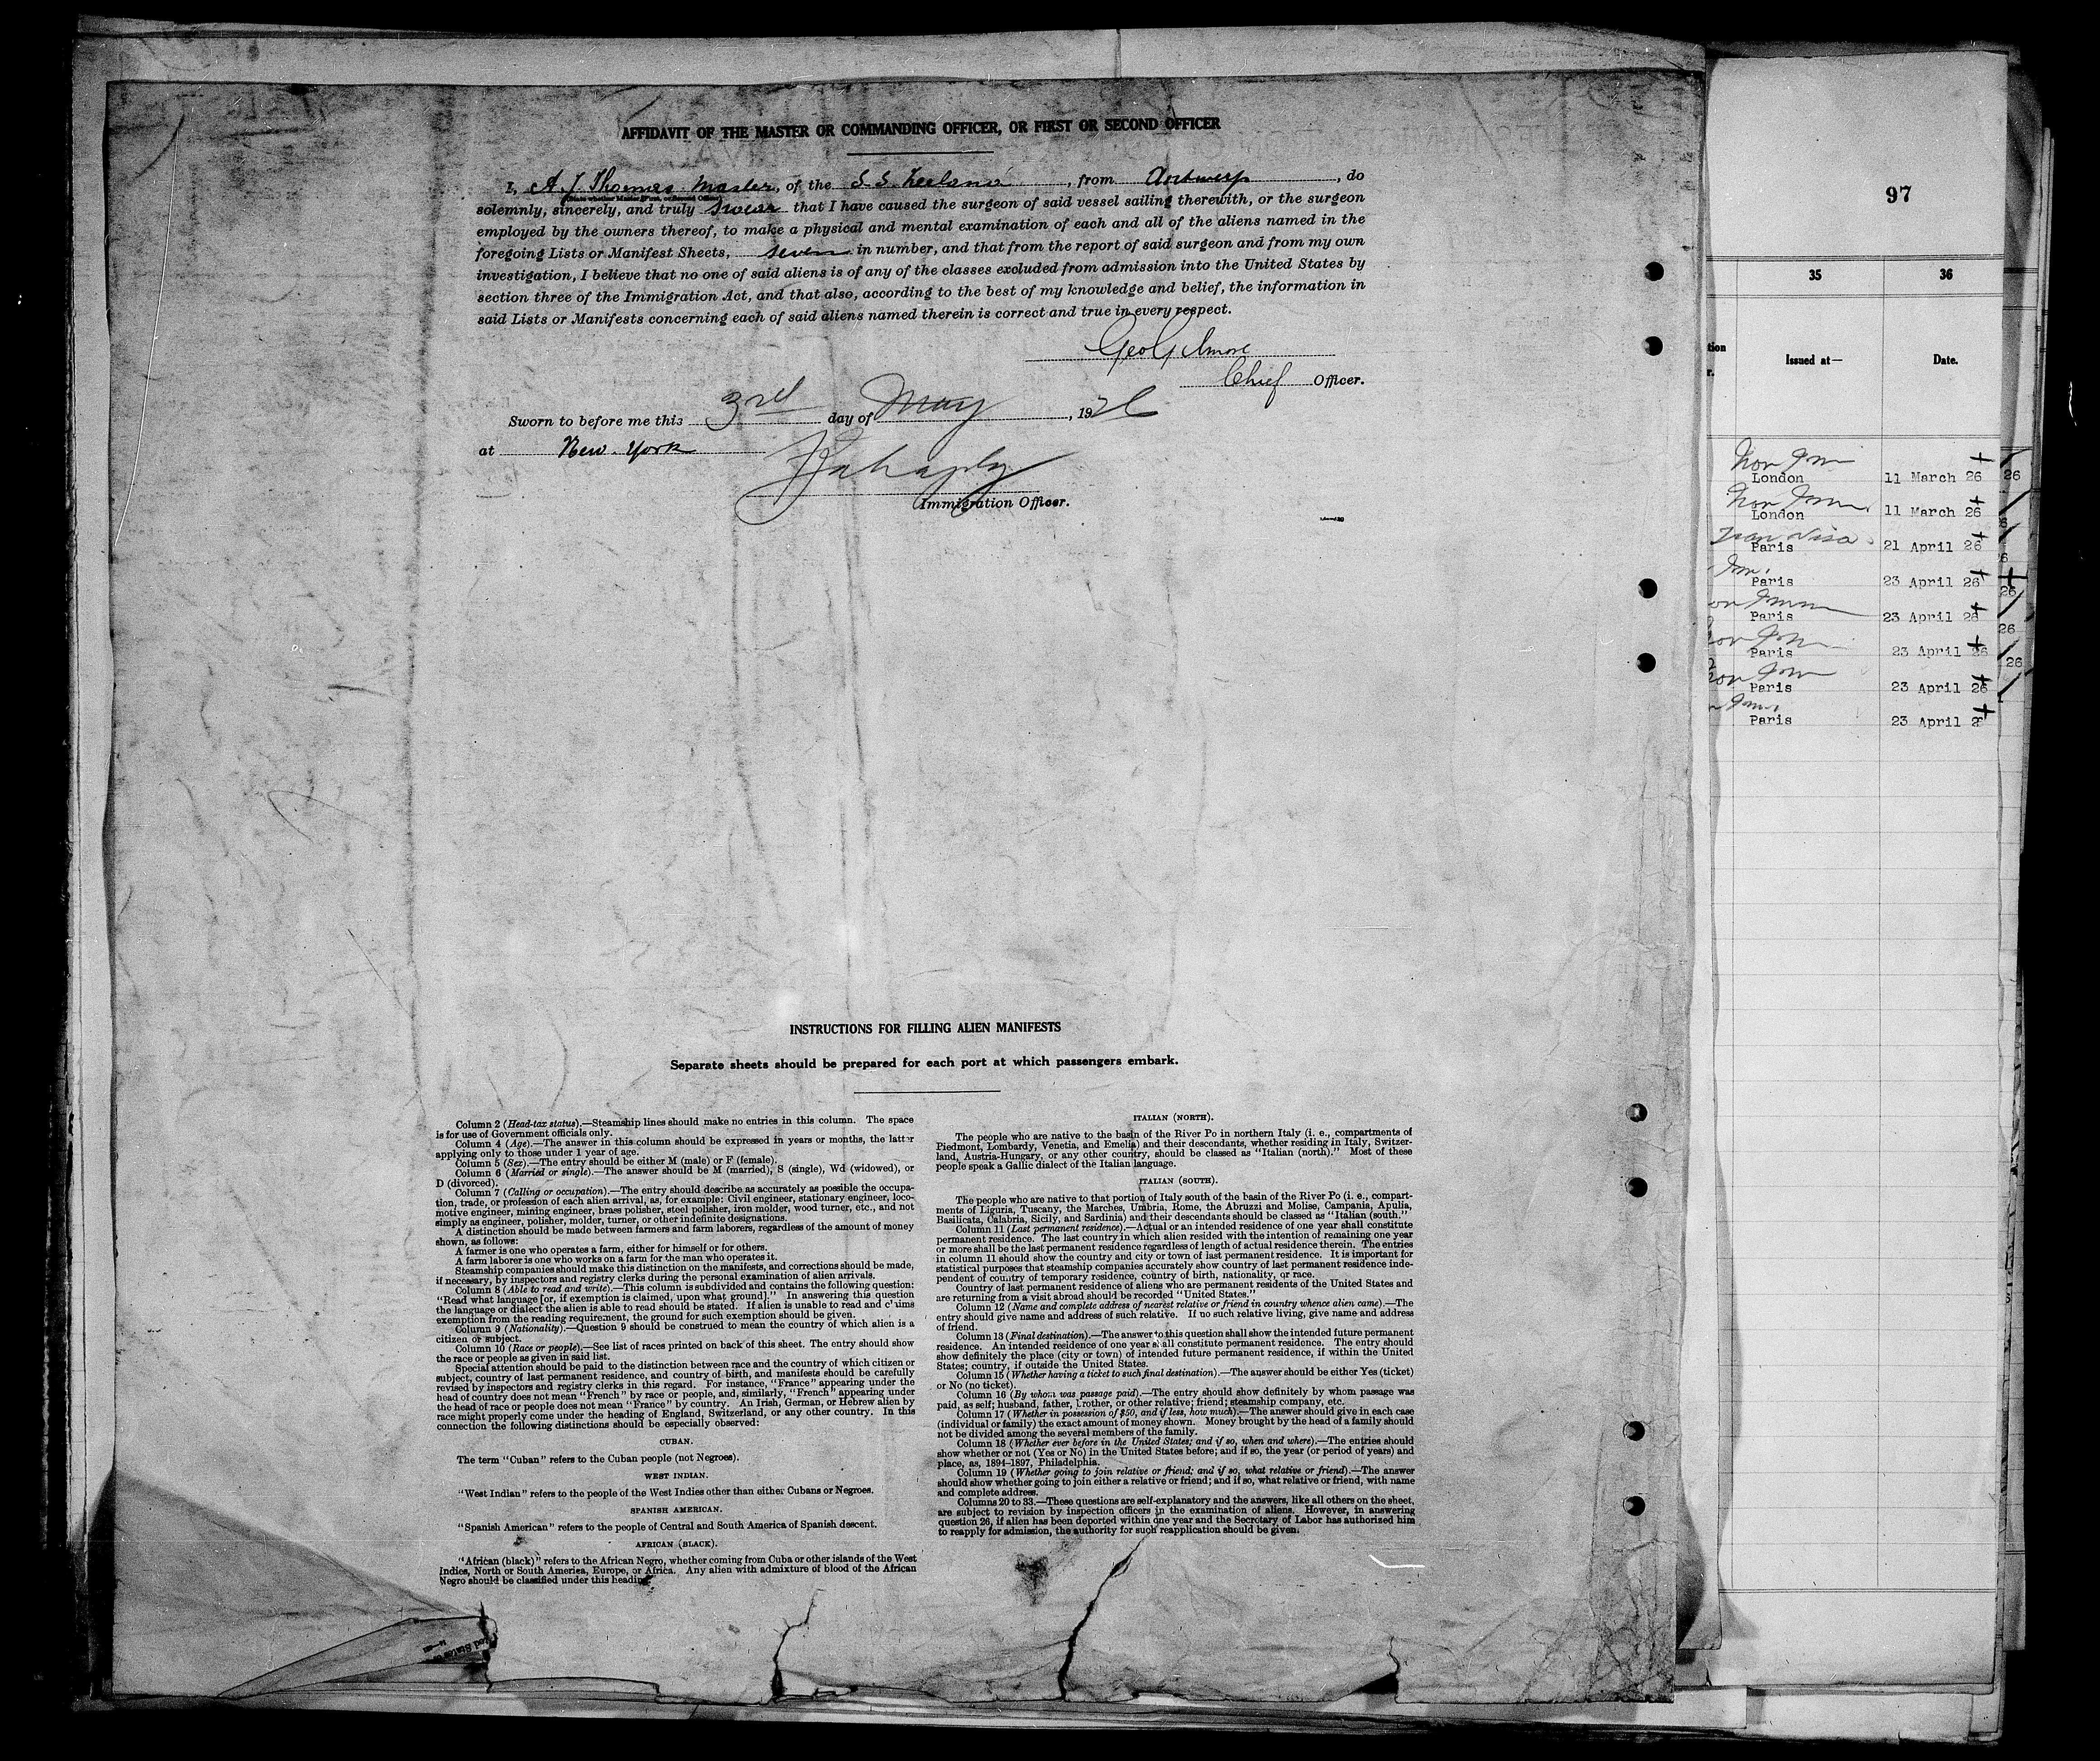 AFFIDAVIT OF THE MASTER OR COMMANDING OFFICER, OR FIRST OR SECOND OFFICER
I, A. J. Thomas Master, of the S.S. Zeeland, from Antwerp, do
(State whether Master, First, or Second Officer)
solemnly, sincerely, and truly swear that I have caused the surgeon of said vessel sailing therewith, or the surgeon
employed by the owners thereof, to make a physical and mental examination of each and all of the aliens named in the
foregoing Lists or Manifest Sheets, seven in number, and that from the report of said surgeon and from my own
investigation, I believe that no one of said aliens is of any of the classes excluded from admission into the United States by
section three of the Immigration Act, and that also, according to the best of my knowledge and belief, the information in
said Lists or Manifests concerning each of said aliens named therein is correct and true in every respect.
Geo Gilmore
Chief Officer.
Sworn to before me this 3rd day of May, 1926
at New York
Immigration Officer.
INSTRUCTIONS FOR FILLING ALIEN MANIFESTS
Separate sheets should be prepared for each port at which passengers embark.
Column 2 (Head-tax status).—Steamship lines should make no entries in this column. The space
is for use of Government officials only.
Column 4 (Age).—The answer in this column should be expressed in years or months, the latter
applying only to those under 1 year of age.
Column 5 (Sex).—The entry should be either M (male) or F (female).
Column 6 (Married or single).—The answer should be M (married), S (single), Wd (widowed), or
D (divorced).
Column 7 (Calling or occupation).—The entry should describe as accurately as possible the occupa-
tion, trade, or profession of each alien arrival, as, for example: Civil engineer, stationary engineer, loco-
motive engineer, mining engineer, brass polisher, steel polisher, iron molder, wood turner, etc., and not
simply as engineer, polisher, molder, turner, or other indefinite designations.
A distinction should be made between farmers and farm laborers, regardless of the amount of money
shown, as follows:
A farmer is one who operates a farm, either for himself or for others.
A farm laborer is one who works on a farm for the man who operates it.
Steamship companies should make this distinction on the manifests, and corrections should be made,
if necessary, by inspectors and registry clerks during the personal examination of alien arrivals.
Column 8 (Able to read and write).—This column is subdivided and contains the following question:
"Read what language [or, if exemption is claimed, upon what ground]." In answering this question
the language or dialect the alien is able to read should be stated. If alien is unable to read and claims
exemption from the reading requirement, the ground for such exemption should be given.
Column 9 (Nationality).—Question 9 should be construed to mean the country of which alien is a
citizen or subject.
Column 10 (Race or people).—See list of races printed on back of this sheet. The entry should show
the race or people as given in said list.
Special attention should be paid to the distinction between race and the country of which citizen or
subject, country of last permanent residence, and country of birth, and manifests should be carefully
revised by inspectors and registry clerks in this regard. For instance, "France" appearing under the
head of country does not mean "French" by race or people, and, similarly, "French" appearing under
the head of race or people does not mean "France" by country. An Irish, German, or Hebrew alien by
race might properly come under the heading of England, Switzerland, or any other country. In this
connection the following distinctions should be especially observed:
CUBAN.
The term "Cuban" refers to the Cuban people (not Negroes).
WEST INDIAN.
"West Indian" refers to the people of the West Indies other than either Cubans or Negroes.
SPANISH AMERICAN.
"Spanish American" refers to the people of Central and South America of Spanish descent.
AFRICAN (BLACK).
"African (black)" refers to the African Negro, whether coming from Cuba or other islands of the West
Indies, North or South America, Europe, or Africa. Any alien with admixture of blood of the African
Negro should be classified under this heading.
ITALIAN (NORTH).
The people who are native to the basin of the River Po in northern Italy (i. e., compartments of
Piedmont, Lombardy, Venetia, and Emelia) and their descendants, whether residing in Italy, Switzer-
land, Austria-Hungary, or any other country, should be classed as "Italian (north)." Most of these
people speak a Gallic dialect of the Italian language.
ITALIAN (SOUTH).
The people who are native to that portion of Italy south of the basin of the River Po (i. e., compart-
ments of Liguria, Tuscany, the Marches, Umbria, Rome, the Abruzzi and Molise, Campania, Apulia,
Basilicata, Calabria, Sicily, and Sardinia) and their descendants should be classed as "Italian (south."
Column 11 (Last permanent residence).—Actual or an intended residence of one year shall constitute
permanent residence. The last country in which alien resided with the intention of remaining one year
or more shall be the last permanent residence regardless of length of actual residence therein. The entries
in column 11 should show the country and city or town of last permanent residence. It is important for
statistical purposes that steamship companies accurately show country of last permanent residence inde-
pendent of country of temporary residence, country of birth, nationality, or race.
Country of last permanent residence of aliens who are permanent residents of the United States and
are returning from a visit abroad should be recorded "United States."
Column 12 (Name and complete address of nearest relative or friend in country whence alien came).—The
entry should give name and address of such relative. If no such relative living, give name and address
of friend.
Column 13 (Final destination).—The answer to this question shall show the intended future permanent
residence. An intended residence of one year shall constitute permanent residence. The entry should
show definitely the place (city or town) of intended future permanent residence, if within the United
States; country, if outside the United States.
Column 15 (Whether having a ticket to such final destination).—The answer should be either Yes (ticket)
or No (no ticket).
Column 16 (By whom was passage paid).—The entry should show definitely by whom passage was
paid, as self; husband, father, brother, or other relative; friend; steamship company, etc.
Column 17 (Whether in possession of $50, and if less, how much).—The answer should give in each case
(individual or family) the exact amount of money shown. Money brought by the head of a family should
not be divided among the several members of the family.
Column 18 (Whether ever before in the United States; and if so, when and where).—The entries should
show whether or not (Yes or No) in the United States before; and if so, the year (or period of years) and
place, as, 1894-1897, Philadelphia.
Column 19 (Whether going to join relative or friend; and if so, what relative or friend).—The answer
should show whether going to join either a relative or friend; and if so, what relative or friend, with name
and complete address.
Columns 20 to 33.—These questions are self-explanatory and the answers, like all others on the sheet,
are subject to revision by inspection officers in the examination of aliens. However, in answering
question 26, if alien has been deported within one year and the Secretary of Labor has authorized him
to reapply for admission, the authority for such reapplication should be given.
97
35 36
Issued at— Date.
Non Imm
London 11 March 26
Non Imm.
London 11 March 26
Tran Visa
Paris 21 April 26
Imm.
Paris 23 April 26
on Imm
Paris 23 April 26
on Imm
Paris 23 April 26
Non Imm
Paris 23 April 26
Imm.
Paris 23 April 26